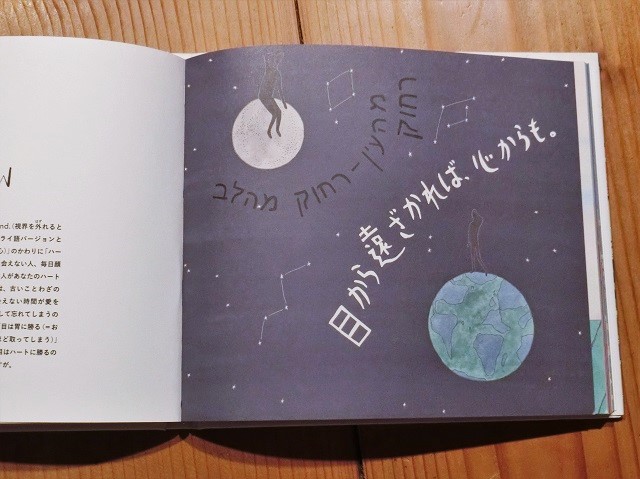 nd.(視界を外れると
ライ語バージョンと
心)」のかわりに「ハー
会えない人、毎日顔
人があなたのハート
は、古いことわざの
えない時間が愛を
して忘れてしまうの
目は胃に勝る(=お
ほど取ってしまう)」
目はハートに勝るの
が。
רחוק
מהעין-רחוק מהלב
目から遠ざかれば、心からも。